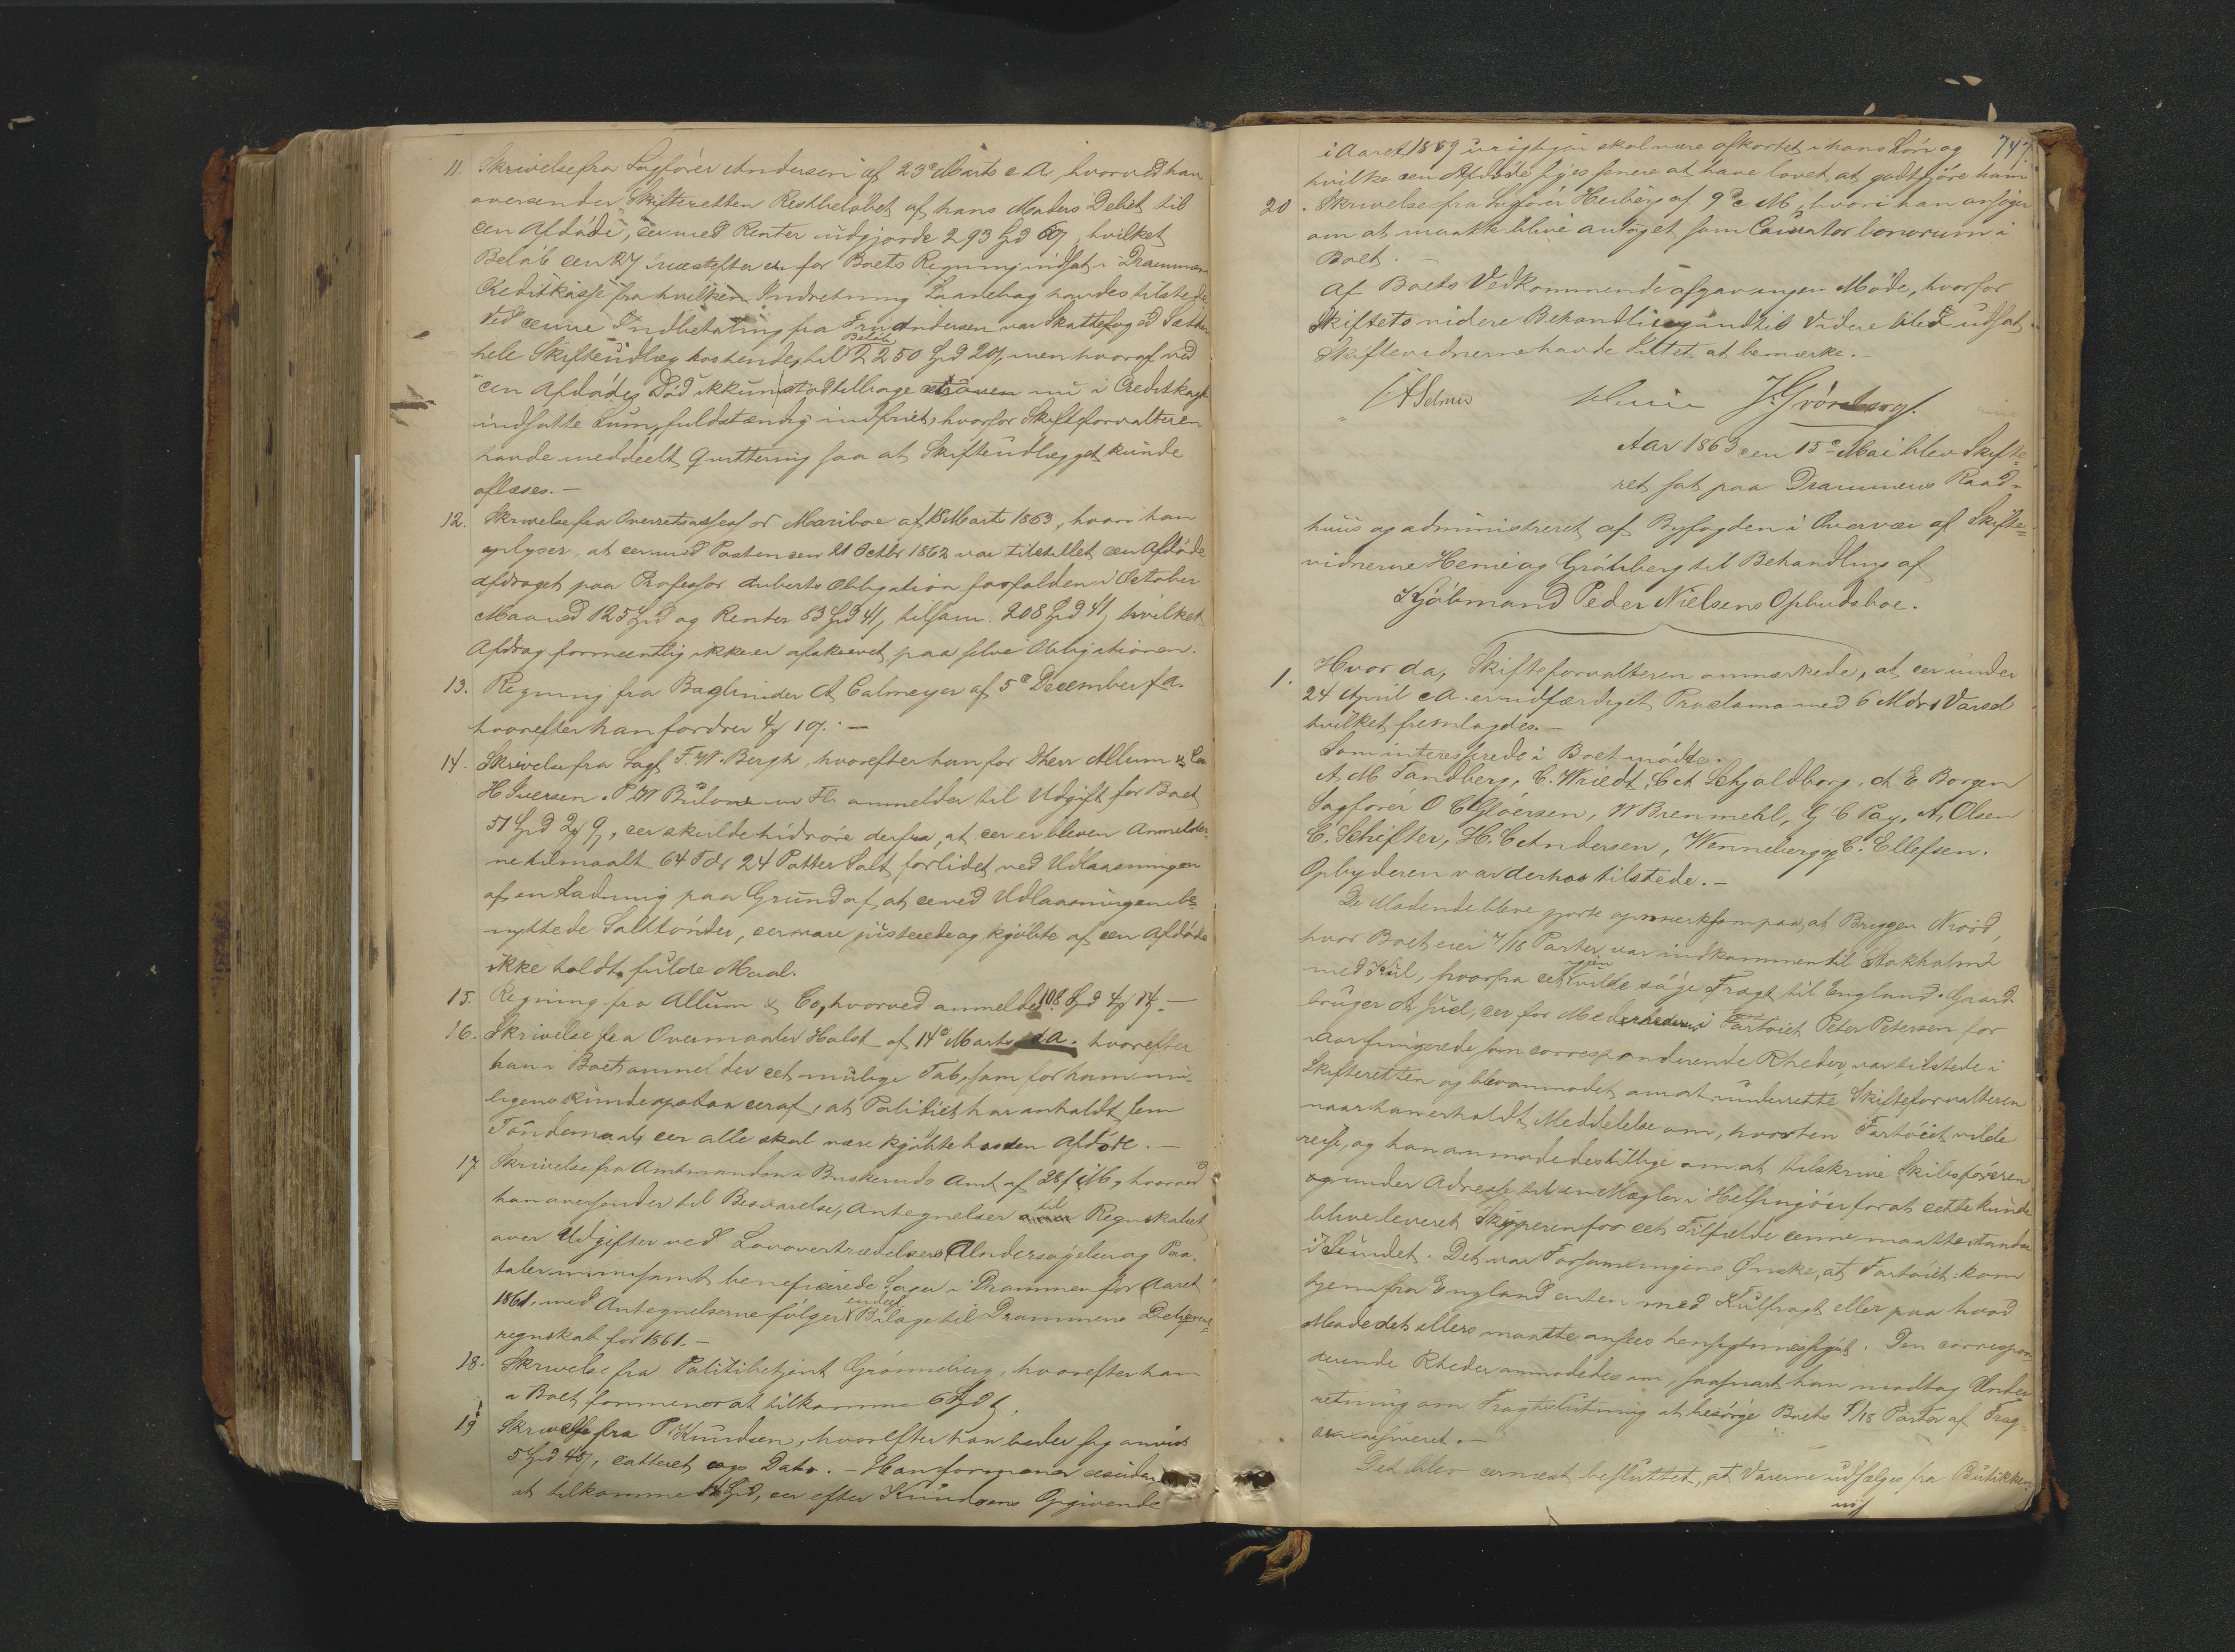 11. Skrivelse fra Sagfører Andersen af 23e Marts d A, hvorved han
oversender Skifteretten Restbeløbet af hans Moders Debet til
den Afdøde, der med Renter udgjorde 293 Spd 69 hvilket
Beløb den 27 næstefter er for Boets Regning indsat i Drammens
Creditkasse fra hvilken Indretning Laanebog havdes tilstede
Ved denne Indbetaling fra Fru Andersen var
hele Skifteudlæg Beløb 2250 Spd 20, men hvoraf ved
den Afdødes Død ikkun stod tilbage den nu i Creditkassen
indsatte Sum, fuldstændig indfriet, hvorfor Skifteforvalteren
havde meddeelt Qvittering saa at Skifteudlægget kunde
aflæses. —
12. Skrivelse fra Overretsassessor Mariboe af 18 Marts 1863, hvori han
oplyser, at der med Posten den 21 Octbr 1862 var tilstillet den Afdøde
Afdraget paa Professor Auberts Obligation forfalden i October
Maaned 125 Spd og Renter 83 Spd 41, tilsam. 208 Spd 41, hvilket
Afdrag formeentlig ikke er afskrevet paa selve Obligationen.
13. Regning fra Bogbinder A Calmeyer af 5e December f A.
hvorefter han fordrer 4 19. —
14. Skrivelse fra Sagf F. W. Bergh, hvorefter han for DHerr Allum & Co
H Iversen, P W Bülow m Fl. anmelder til Udgift for Boet
51 Spd 2 9, der skulde hidrøre derfra, at der er bleven Anmelder-
ne tilmaalt 64 Tdr 24 Potter Salt forlidet ved Udlaasningen
af en Ladning paa Grund af, at de ved Udlaasningen be-
nyttede Salttønder, der vare justerede og kjøbte af den Afdøde
ikke holdt fulde Maal.
15. Regning fra Allum & Co, hvorved anmeldes 108 Spd 4 14. —
16. Skrivelse fra Overmaaler Holst af 14e Marts d A. hvorefter
han i Boet anmelder det mulige Tab, som for ham mu-
ligens kunde opstaa deraf, at Politiet har anholdt fem
Tøndemaal, der alle skal være kjøbte hos den Afdøde. —
17 Skrivelse fra Amtmanden i Buskeruds Amt af 28 f M, hvorved
han oversender til Besvarelse, Antegnelser til Regnskabet
over Udgifter ved Lovovertrædelsers Undersøgelser og Paa-
taler m m samt beneficerede Sager i Drammen for Aaret
1861, med Antegnelserne følger endeel Bilage til Drammens
regnskab for 1861. —
18. Skrivelse fra Politibetjent Grønneberg, hvorefter han
i Boet formener at tilkomme 6 Spd
19 Skrivelse fra P. Knudsen, hvorefter han beder sig anvist
5 Spd 48, dateret Dato. — Han formener desuden
at tilkomme Spd, der efter Knudsens Opgivende
747.
i Aaret 1859 urigtigen skal være afkortet i hans Løn og
hvilke den Afdøde siges senere at have lovet at godtgjøre ham
20. Skrivelse fra Sagfører Heiberg af 9de d M, hvori han ansøger
om at maatte blive antaget som Curator bonorum i
Boet. —
Af Boets Vedkommende afgav ingen Møde, hvorfor
Skiftets videre Behandling indtil Videre blev udsat
Skiftevidnerne havde Intet at bemærke. —
Selmer Henie J. Grønberg.
Aar 1863 den 15e Mai blev Skifte-
ret sat paa Drammens Raad-
huus og administreret af Byfogden i Overvær af Skifte-
vidnerne Henie og Grønberg til Behandling af
Kjøbmand Peder Nielsens Opbudsboe.
1. Hvor da, Skifteforvalteren anmærkede, at der under
24 April d A. er udfærdiget Proclama med 6 Mdrs Varsel
hvilket fremlagdes. —
Som interesserede i Boet mødte:
A. M. Tandberg, C. Wriedt, C A Schjoldborg, A E Borgen
Sagfører O C Gløersen, W Brenmehl, G C Pay, A. Olsen
C. Schifter, H. C Andersen, Wenneberg og C. Ellefsen.
Opbyderen var derhos tilstede. —
De Mødende bleve gjorte opmærksom paa, at Briggen Niord,
hvor Boet eier 7/18 Parter var indkommen til Stokholm
med Kul, hvorfra det igjen vilde søge Fragt til England. Gaard-
bruger A Juel, der for Medrhederen i Fartøiet Peter Petersen for
fungerede som correspanderende Rheder, var tilstede i
Skifteretten og blev anmodet om at underrette Skifteforvalteren
naar han erholdt Meddelelse om, hvorhen Fartøiet vilde
reise, og han anmodedes tillige om at tilskrive Skibsføreren
under Adresse til en Mægler i Helsingøer for at dette kunde
blive leveret Skipperen for det Tilfælde denne maatte stande
i Sundet. Det var Forsamlingens Ønske, at Fartøiet kom
hjem fra England enten med Kulfragt eller paa hvad
Maade det ellers maatte ansees hensigtsmæssigst. Den correspon-
derende Rheder anmodedes om, saasnart han modtog Under-
retning om Fragtslutning at besørge Boets 7/18 Parter af Frag-
assureret. —
Det blev dernæst besluttet, at Varerne udsælges fra Butikken